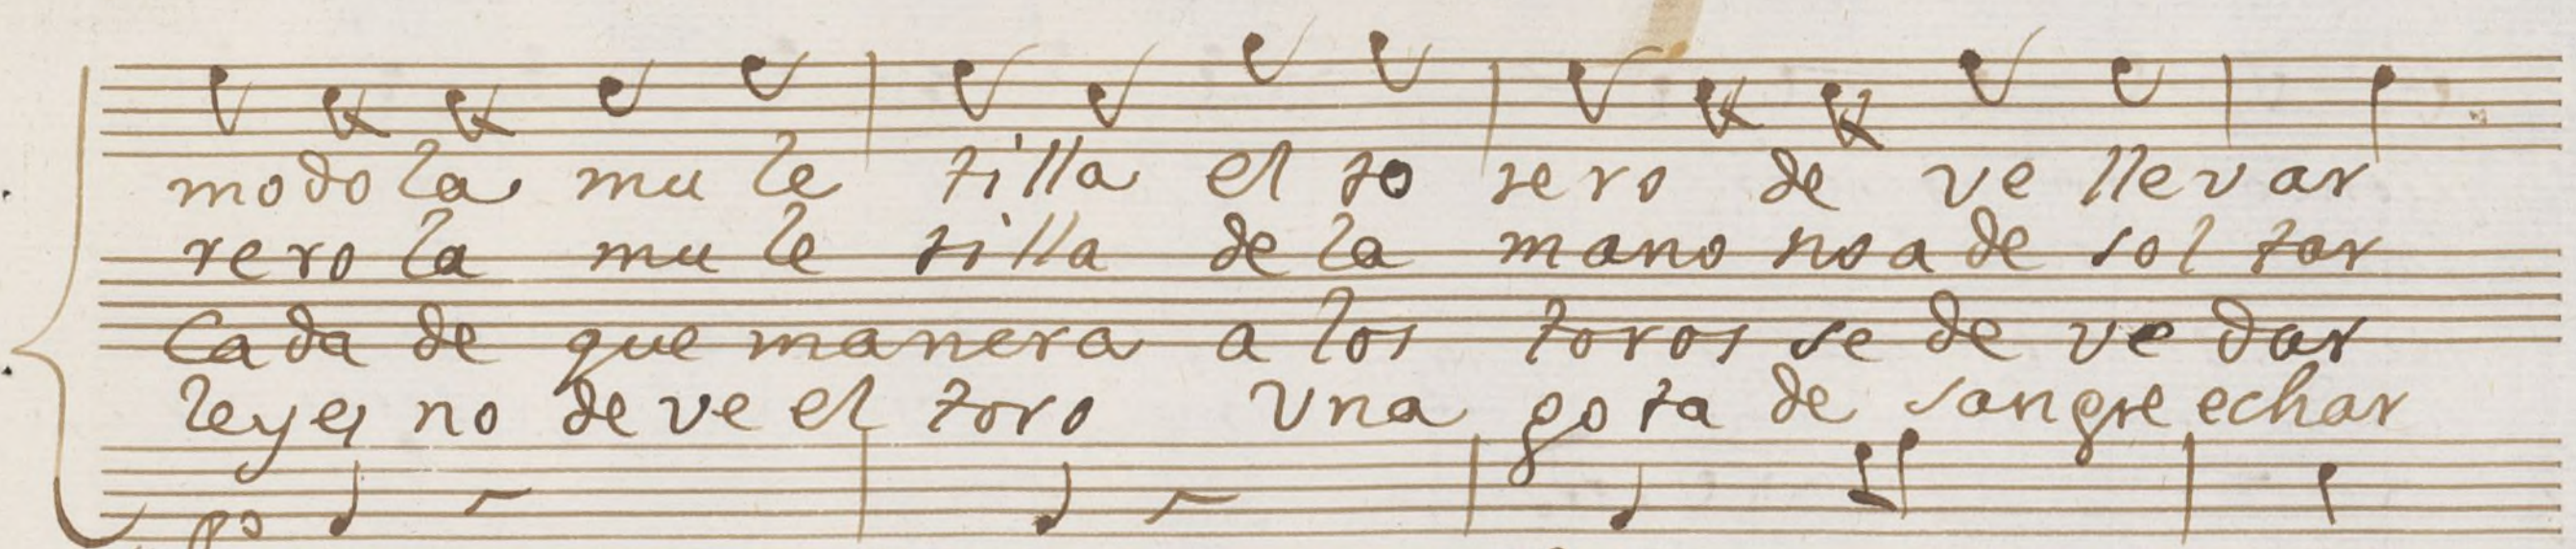 modo la mu le tilla el to rero de ve llevar
rero la mu le tilla de la mano no a de sol tar
Cada de que manera a los toros se de ve dar
leyes no de ve el toro Una gota de sangre echar
po